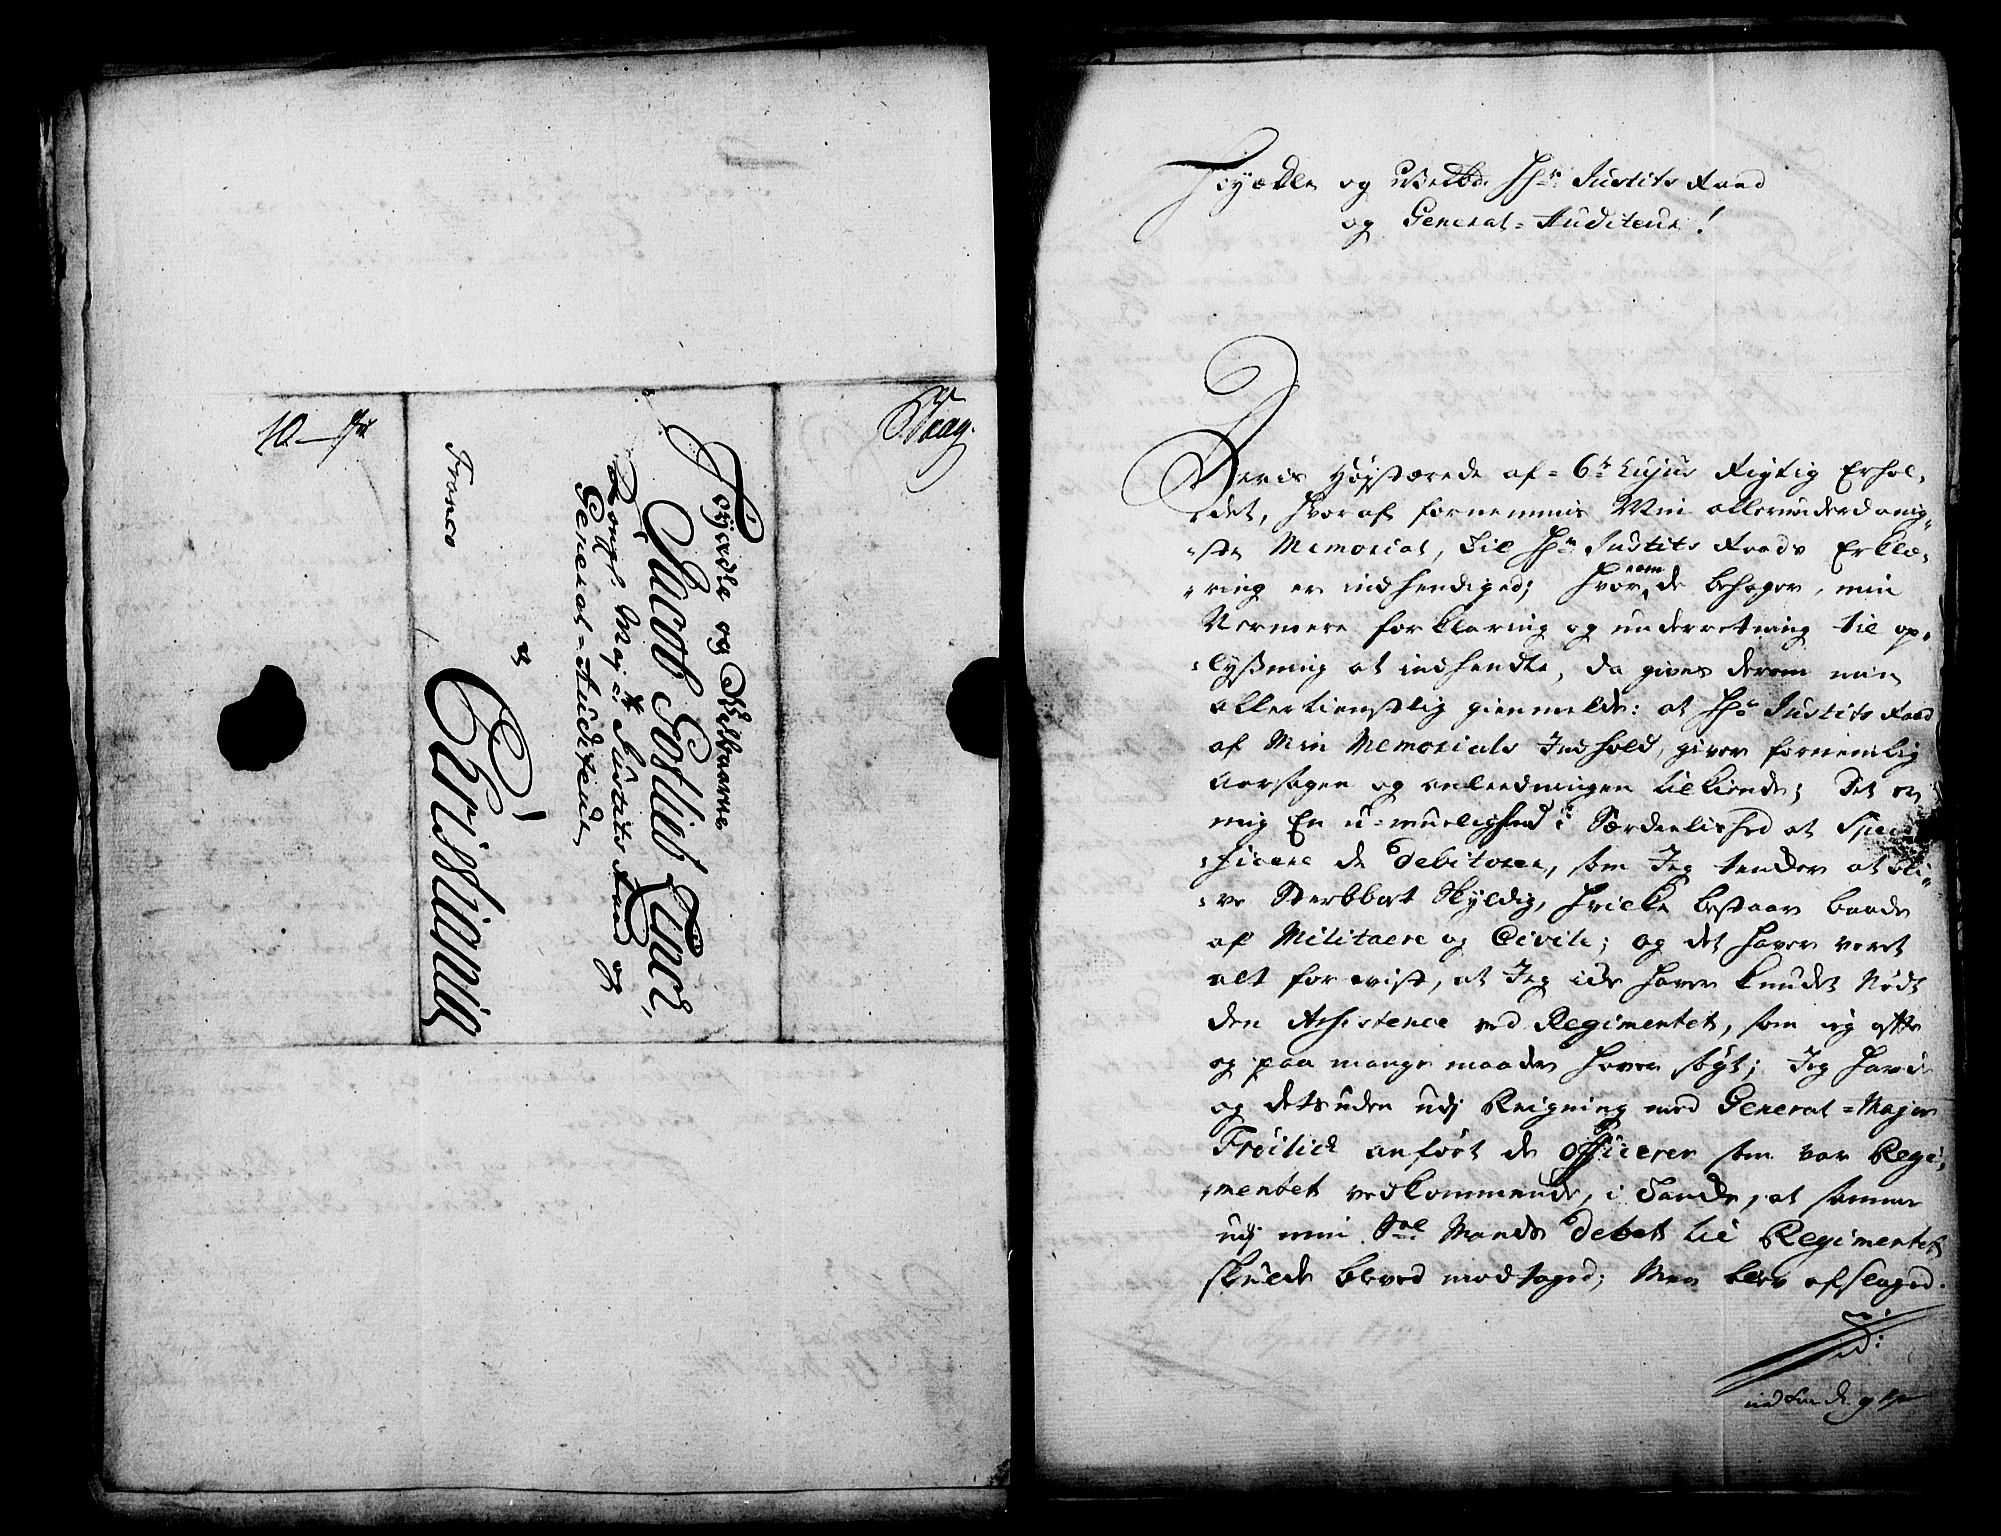 10 —
Franco
Høyædle og Velbaarne
Jacob Gotlieb Finck,
Kongl: Maj:ts Justits Raad og
General-Auditeur
a
Christiania
Høyædle og Welb: Hr: Justits Raad
og General-Auditeur!
Deris Højstærede af 6te hujus Rigtig Erhol-
det, hvoraf fornemmis Min allerunderdanig-
ste Memorial, til Hr: Justits Raads Erklæ-
ring er indhendiged; hvorom de behager, min
Nermere forklaring og underretning til op-
lyßning at indhendte, da gives derom min
allertienstlig gienmelde: at Hr: Justits Raad
af Min Memorials Indhold, giver fornemlig
Aarsagen og anleedningen tilkiende; Det er
mig En u-muelighed i Særdeelished at Speci-
ficere de Debitorer, som Jeg tender at bli-
ve Sterbboet Skyldig, hvilke bestaar baade
af Militaere og Civile; og det haver veret
alt for vist, at Jeg icke haver kundet Nødt
den Assistence ved Regimentet, som ieg ofte
og paa mange maader haver søgt; Jeg havde
og detsuden udj Reigning med General-Major
Frøilich anført de Officerer som var Regi-
mentet vedkommende, i tanche, at samme
udj min Sal: Mands Debet til Regimentet
skulde bleved modtaged; Men blev afslaged.